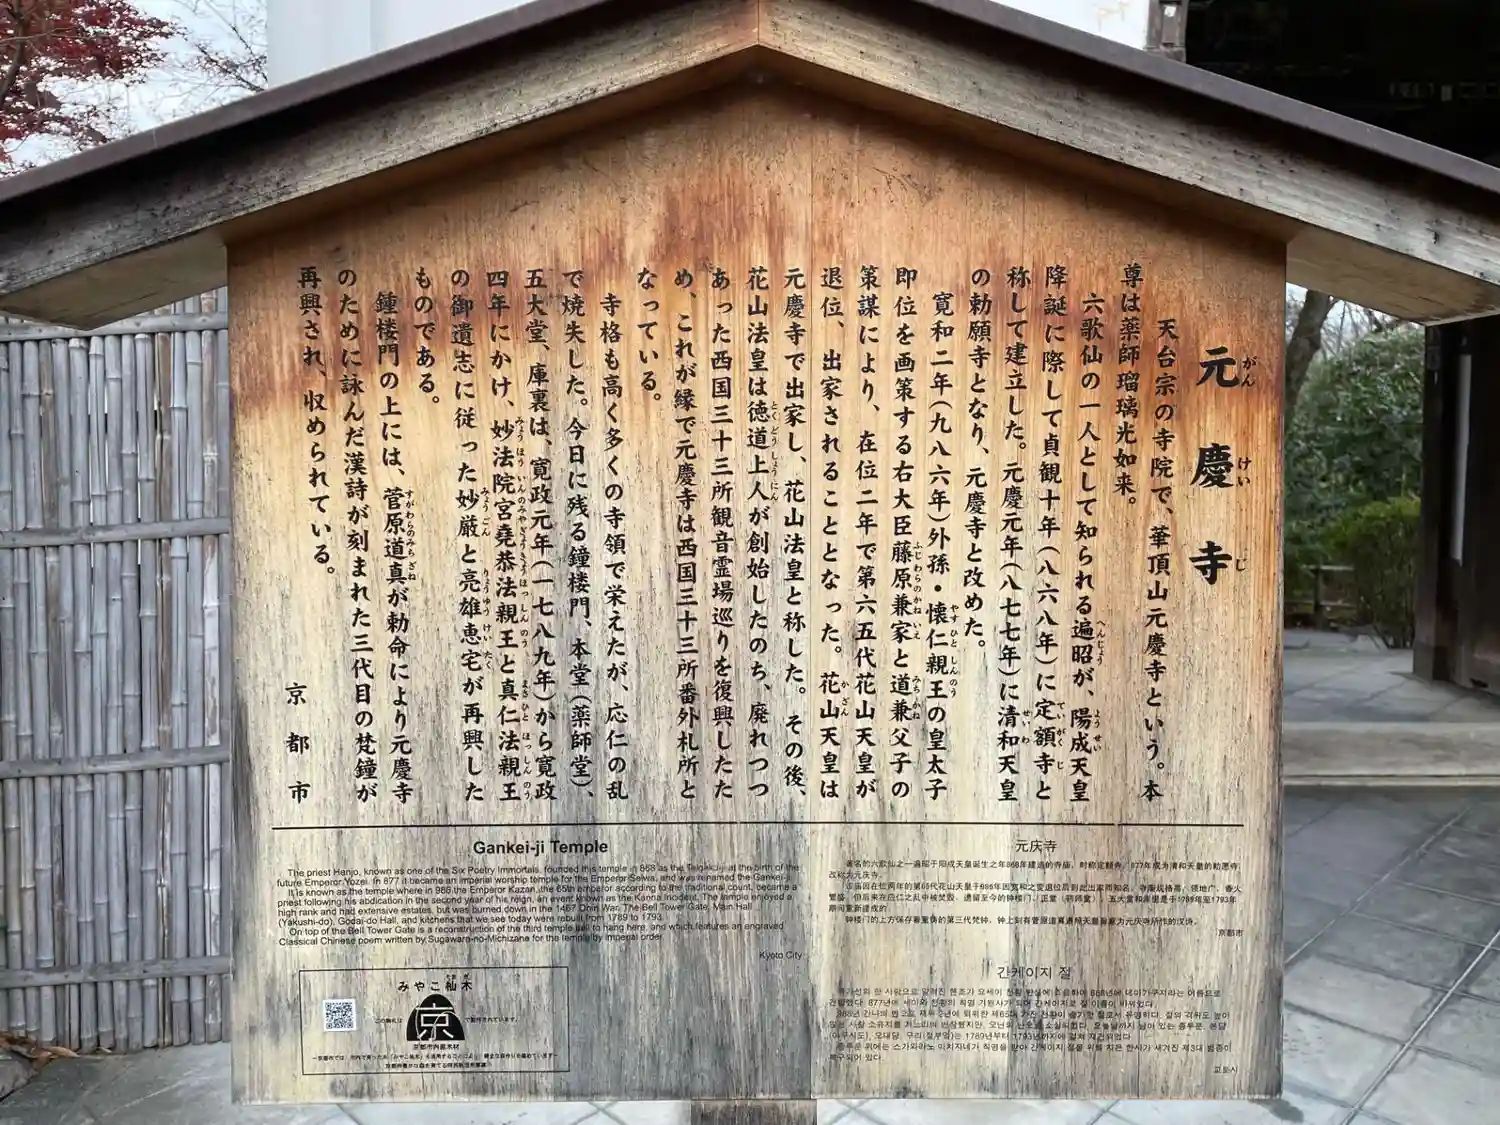 元慶寺
がんけいじ
天台宗の寺院で、華頂山元慶寺という。本
尊は薬師瑠璃光如来。
六歌仙の一人として知られる遍昭が、陽成天皇
降誕に際して貞観十年(八六八年)に定額寺と
称して建立した。元慶元年(八七七年)に清和天皇
の勅願寺となり、元慶寺と改めた。
寛和二年(九八六年)外孫・懐仁親王の皇太子
即位を画策する右大臣藤原兼家と道兼父子の
策謀により、在位二年で第六五代花山天皇が
退位、出家されることとなった。花山天皇は
元慶寺で出家し、花山法皇と称した。その後、
花山法皇は徳道上人が創始したのち、廃れつつ
あった西国三十三所観音霊場巡りを復興したた
め、これが縁で元慶寺は西国三十三所番外札所と
なっている。
寺格も高く多くの寺領で栄えたが、応仁の乱
で焼失した。今日に残る鐘楼門、本堂(薬師堂)、
五大堂、庫裏は、寛政元年(一七八九年)から寛政
四年にかけ、妙法院宮堯恭法親王と真仁法親王
の御遺志に従った妙厳と亮雄恵宅が再興した
ものである。
鐘楼門の上には、菅原道真が勅命により元慶寺
のために詠んだ漢詩が刻まれた三代目の梵鐘が
再興され、収められている。
京都市
Gankei-ji Temple
The priest Henjo, known as one of the Six Poetry Immortals, founded this temple in 868 as the Teigaku-ji at the birth of the
future Emperor Yozei. In 877 it became an imperial worship temple for the Emperor Seiwa, and was renamed the Gankei-ji.
It is known as the temple where in 986 the Emperor Kazan, the 65th emperor according to the traditional count, became a
priest following his abdication in the second year of his reign, an event known as the Kanna Incident. The temple enjoyed a
high rank and had extensive estates, but was burned down in the 1467 Onin War. The Bell Tower Gate, Main Hall
(Yakushi-do), Godai-do Hall, and kitchens that we see today were rebuilt from 1789 to 1793.
On top of the Bell Tower Gate is a reconstruction of the third temple bell to hang here, and which features an engraved
Classical Chinese poem written by Sugawara-no-Michizane for the temple by imperial order.
Kyoto City
元庆寺
著名的六歌仙之一遍昭于阳成天皇诞生之年868年建造的寺庙，时称定额寺。877年成为清和天皇的勅愿寺，
改称为元庆寺。
钟楼门的上方保存着重铸的第三代梵钟，钟上刻有菅原道真遵照天皇旨意为元庆寺所作的汉诗。
京都市
간케이지 절
교토시
みやこ杣木
この駒札は
京
で製作されています。
京都市内産木材